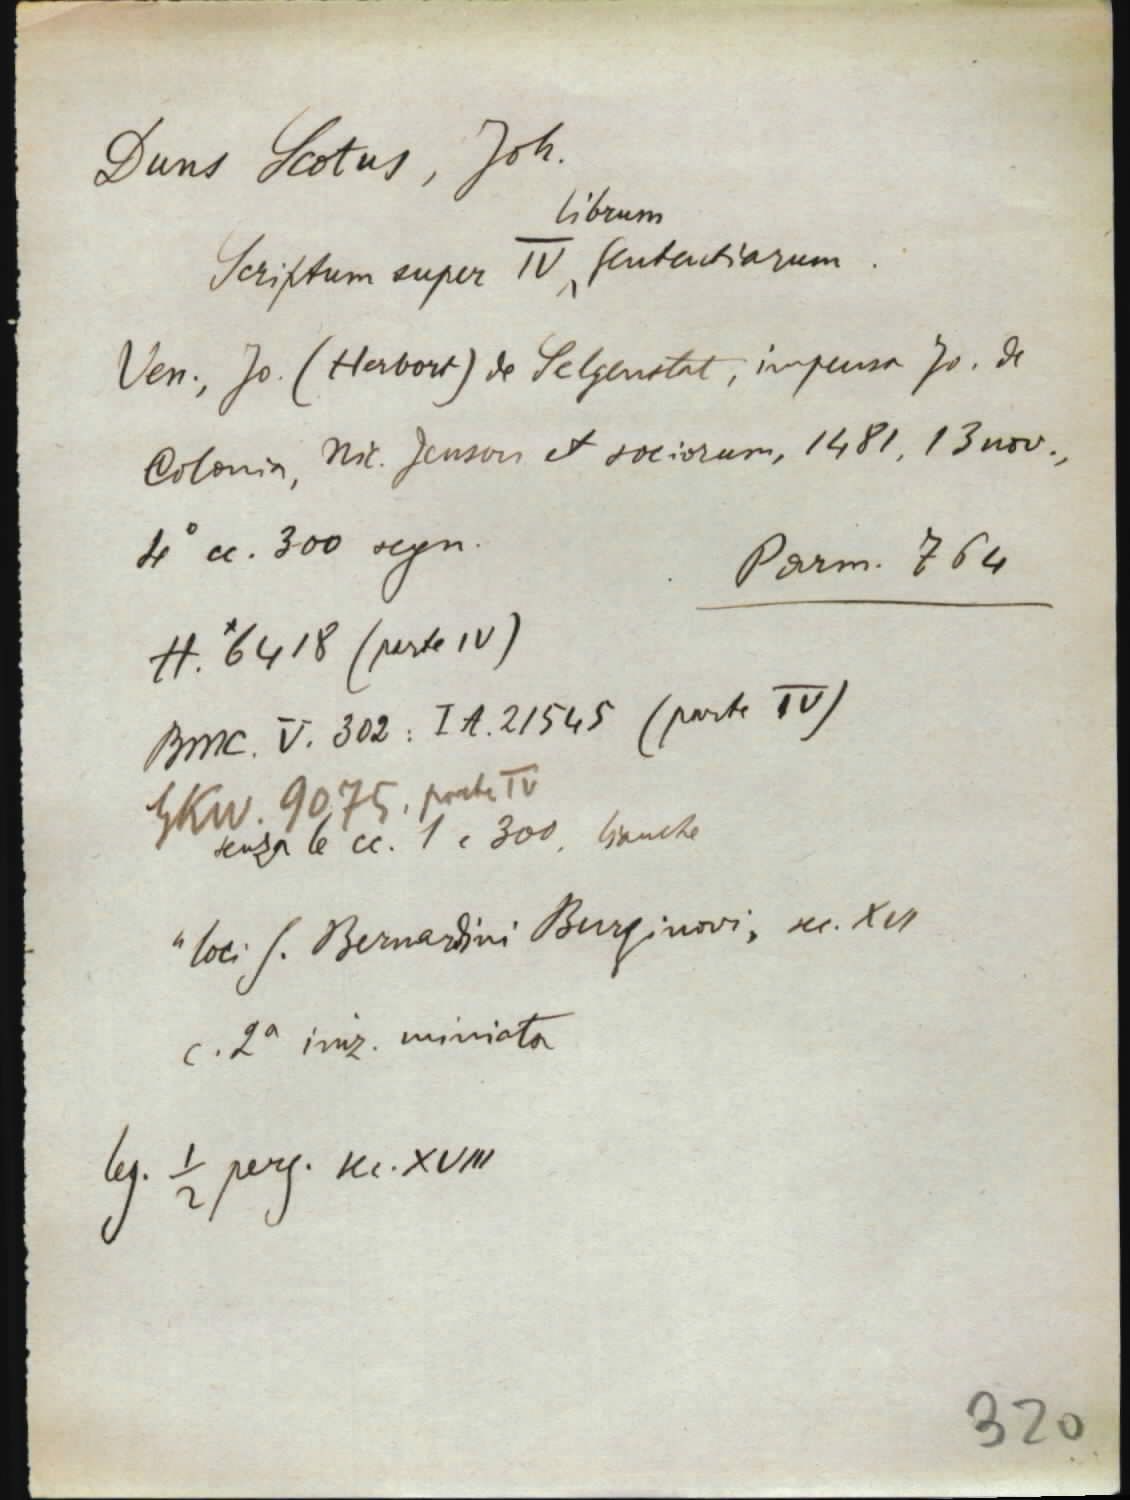 Duns Scotus, Joh.
librum
Scriptum super IV ^ Sententiarum.
Ven., Jo. (Herbort) de Selgenstat, impensa Jo. de
Colonia, Nic. Jenson et sociorum, 1481, 13 nov.,
4° cc. 300 segn.
Parm. 764
H. *6418 (parte IV)
BMC. V. 302: IA. 21545 (parte IV)
GKW. 9075, parte IV
senza le cc. 1 e 300, bianche
"loci S. Bernardini Burginovi, sec.
c. 2a iniz. miniata
leg. 1/2 perg. sec. XVIII
320